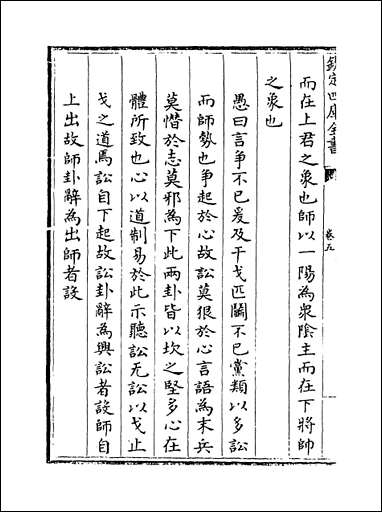 欽定四庫全書
卷五
而在上君之象也師以一陽為衆陰主而在下將帥
之象也
愚曰言爭不已爰及干戈匹鬭不已黨類以多訟
而師勢也爭起於心故訟莫狠於心言語為末兵
莫憯於志莫邪為下此兩卦皆以坎之堅多心在
體所致也心以道制易於此示聽訟无訟以戈止
戈之道焉訟自下起故訟卦辭為興訟者設師自
上出故師卦辭為出師者設